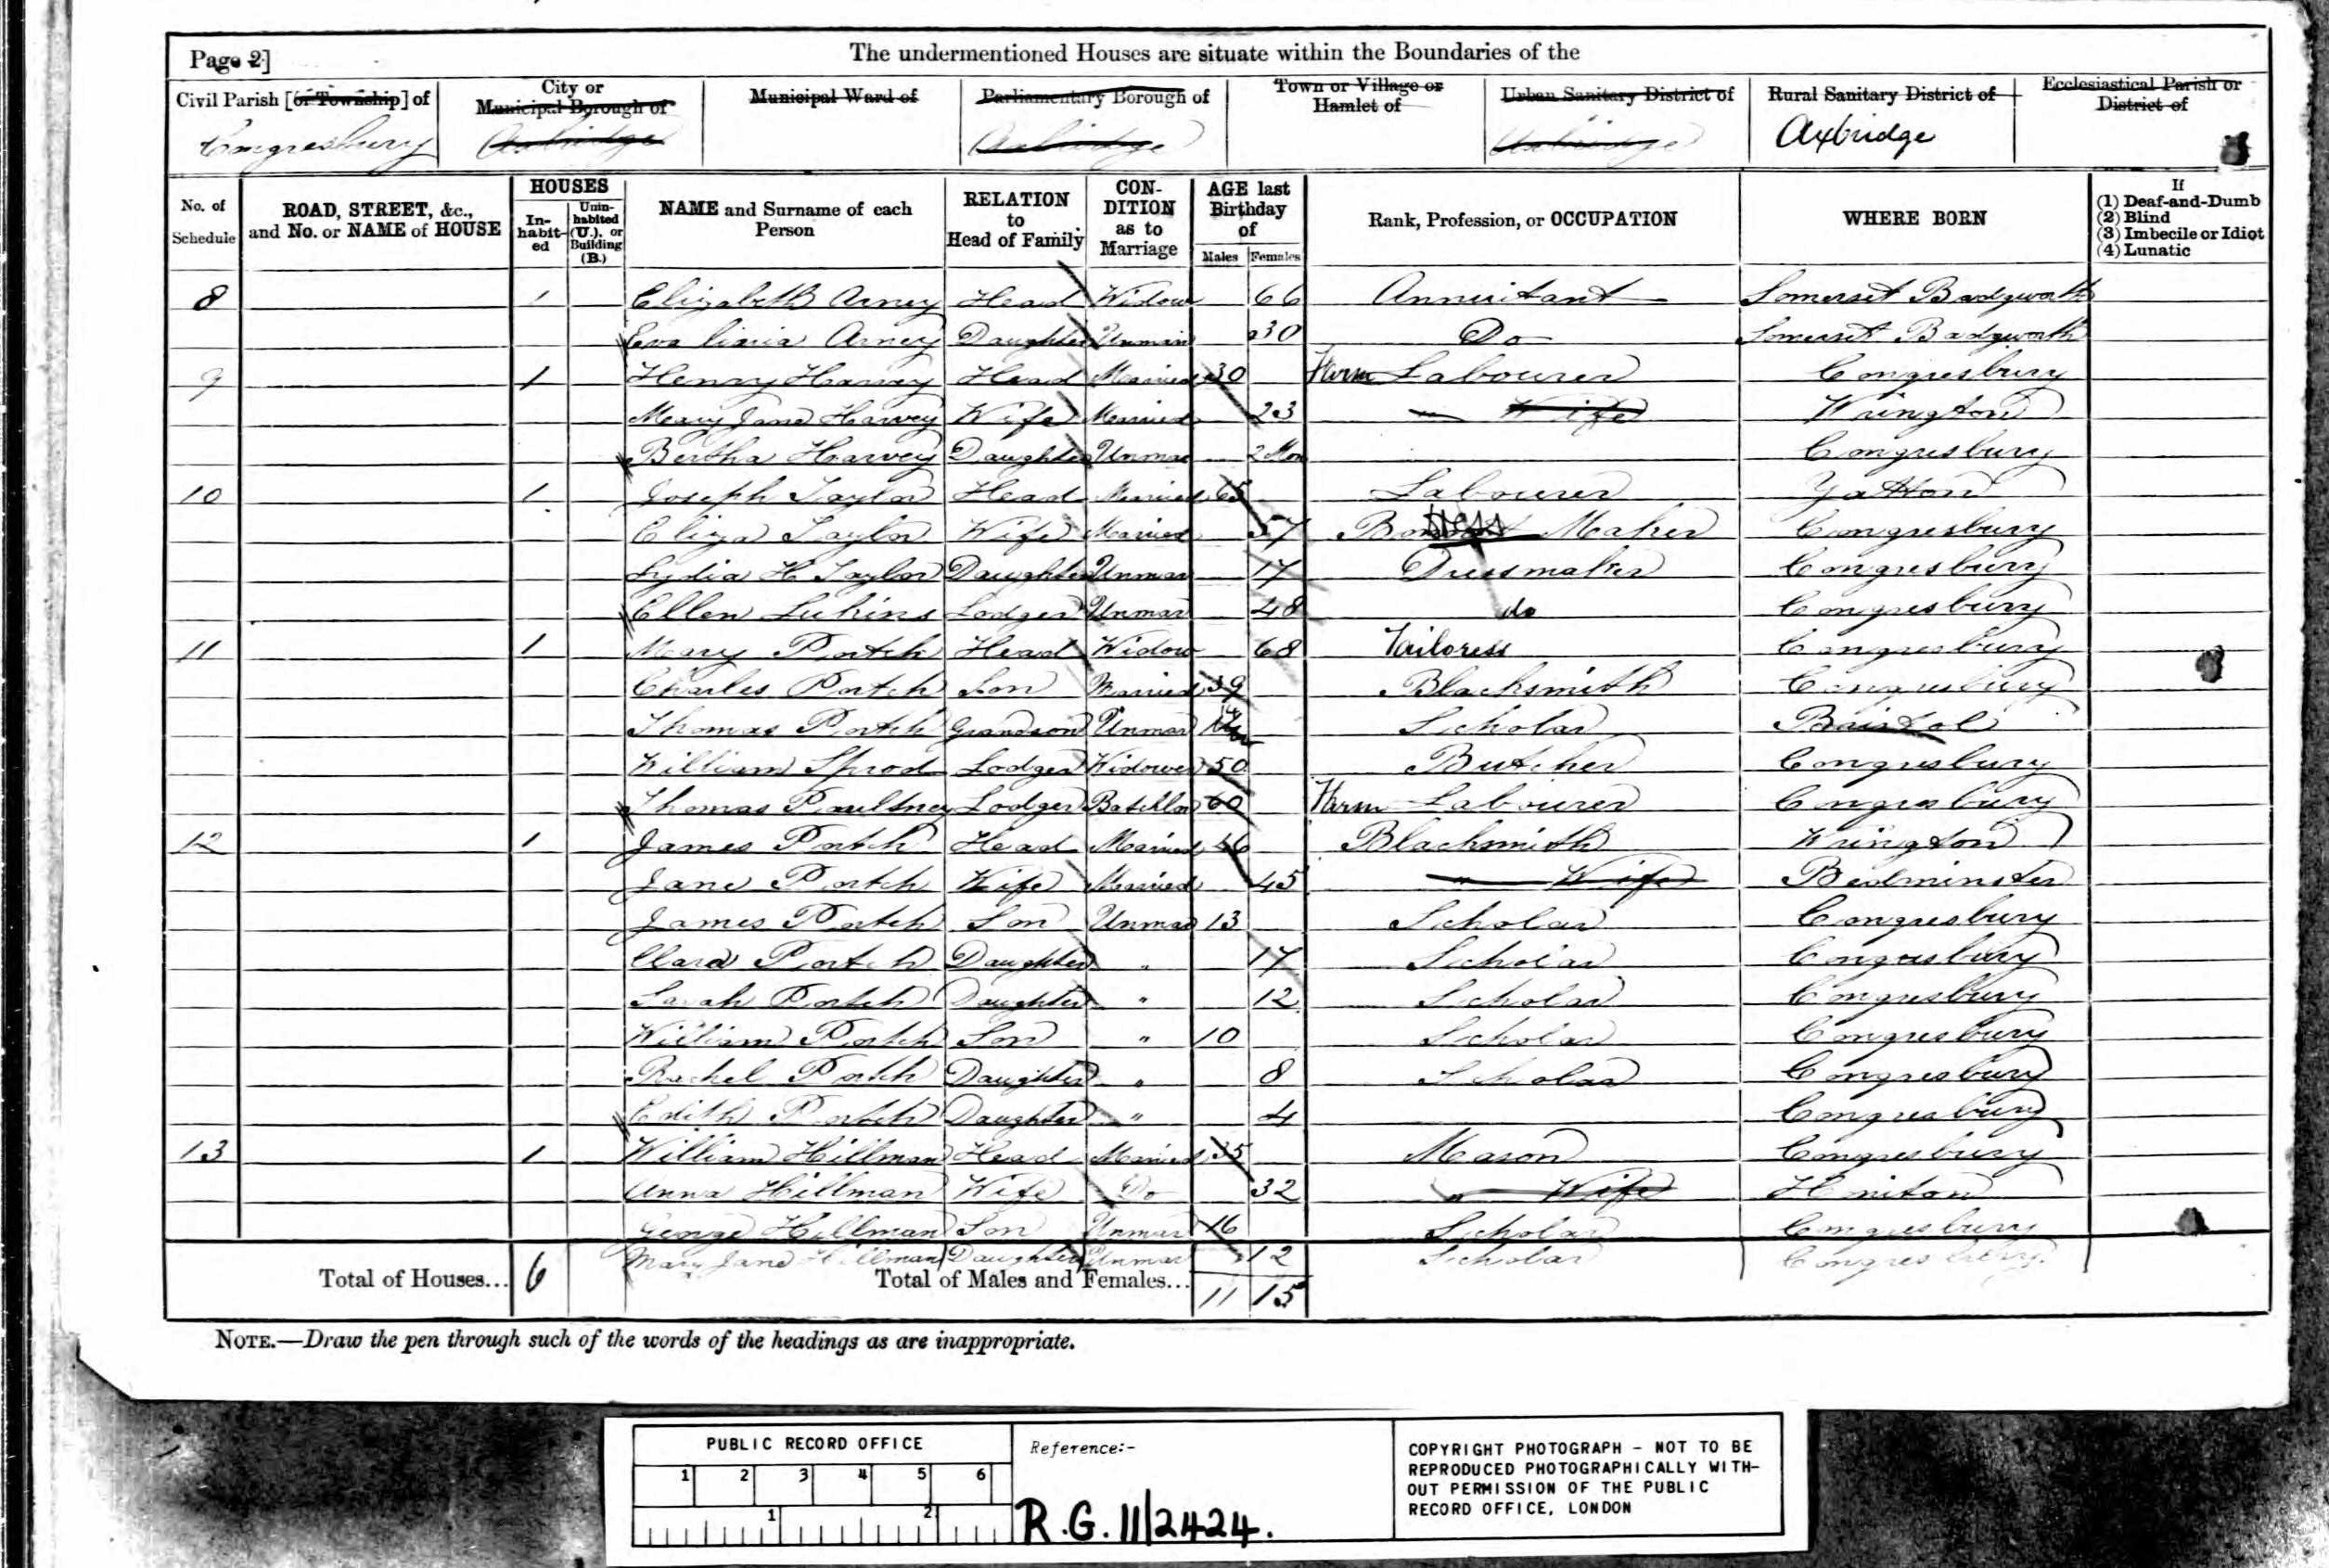 Page 2]
The undermentioned Houses are situate within the Boundaries of the
Civil Parish [or Township] of
City or Municipal Borough of
Municipal Ward of
Parliamentary Borough of
Town or Village or Hamlet of
Urban Sanitary District of
Rural Sanitary District of
Ecclesiastical Parish or District of
Congresbury Axbridge Axbridge Axbridge Axbridge
No. of Schedule
ROAD, STREET, &c., and No. or NAME of HOUSE
HOUSES
In-habit-ed
Unin-habited (U.), or Building (B.)
NAME and Surname of each Person
RELATION to Head of Family
CON-DITION as to Marriage
AGE last Birthday of
Males Females
Rank, Profession, or OCCUPATION
WHERE BORN
If
(1) Deaf-and-Dumb
(2) Blind
(3) Imbecile or Idiot
(4) Lunatic
8 1 Elizabeth Arney Head Widow 66 Annuitant Somerset Badgworth
Eva Arney Daughter Unmar 30 Do Somerset Badgworth
9 1 Henry Harvey Head Married 30 Farm Labourer Congresbury
Mary Jane Harvey Wife Married 23 " Wife Wrington
Bertha Harvey Daughter Unmar 2 Mon Congresbury
10 1 Joseph Taylor Head Married 65 Labourer Yatton
Eliza Taylor Wife Married 57 Maker Congresbury
Lydia H Taylor Daughter Unmar 17 Dressmaker Congresbury
Ellen Lukins Lodger Unmar 48 do Congresbury
11 1 Mary Portch Head Widow 68 Tailoress Congresbury
Charles Portch Son Married 39 Blacksmith Congresbury
Thomas Portch Grandson Unmar Scholar Bristol
William Sprod Lodger Widower 50 Butcher Congresbury
Thomas Paultney Lodger Batchlor 60 Farm Labourer Congresbury
12 1 James Portch Head Married 46 Blacksmith Wrington
Jane Portch Wife Married 45 " Wife Bedminster
James Portch Son Unmar 13 Scholar Congresbury
Clara Portch Daughter " 17 Scholar Congresbury
Sarah Portch Daughter " 12 Scholar Congresbury
William Portch Son " 10 Scholar Congresbury
Rachel Portch Daughter " 8 Scholar Congresbury
Edith Portch Daughter " 4 Congresbury
13 1 William Hillman Head Married 35 Mason Congresbury
Anna Hillman Wife Do 32 " Wife Honiton
George Hillman Son Unmar 16 Scholar Congresbury
Mary Jane Hillman Daughter Unmar 12 Scholar Congresbury
Total of Houses... 6 Total of Males and Females... 11 15
NOTE.—Draw the pen through such of the words of the headings as are inappropriate.
PUBLIC RECORD OFFICE
1 2 3 4 5 6
1 2
Reference:-
R.G. 11/2424.
COPYRIGHT PHOTOGRAPH - NOT TO BE
REPRODUCED PHOTOGRAPHICALLY WITH-
OUT PERMISSION OF THE PUBLIC
RECORD OFFICE, LONDON